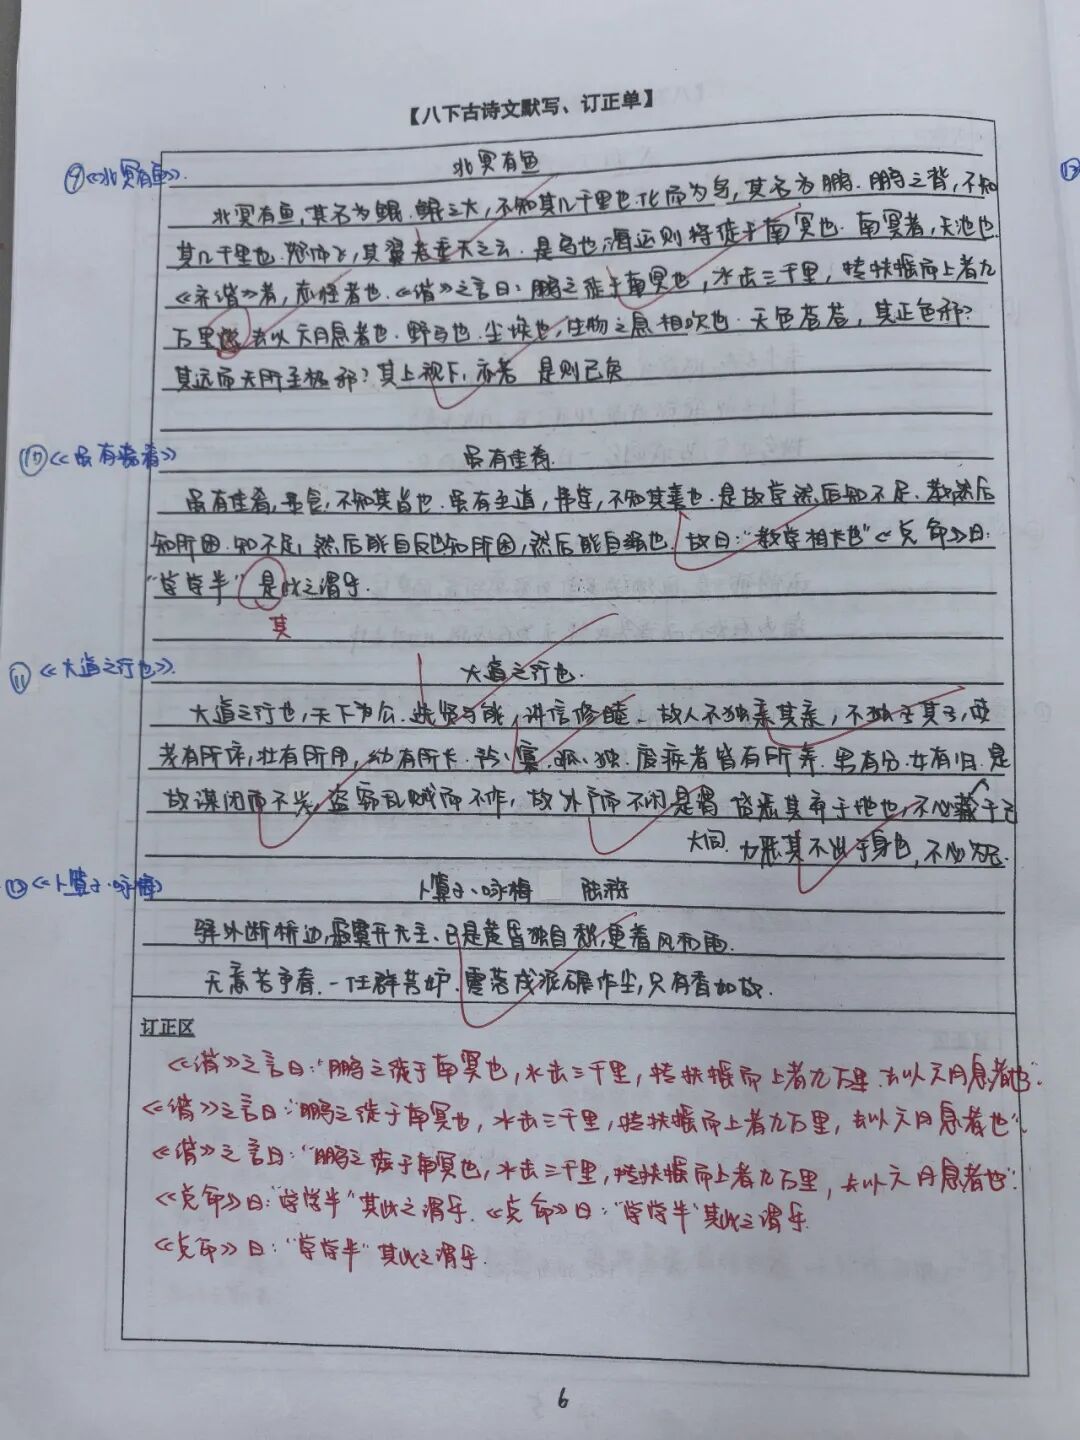 【八下古诗文默写、订正单】
⑨《北冥有鱼》.
北冥有鱼
北冥有鱼,其名为鲲.鲲之大,不知其几千里也.化而为鸟,其名为鹏.鹏之背,不知
其几千里也.怒而飞,其翼若垂天之云.是鸟也,海运则将徙于南冥也.南冥者,天池也.
《齐谐》者,志怪者也.《谐》之言曰:鹏之徙于南冥也,水击三千里,抟扶摇而上者九
万里 去以六月息者也.野马也.尘埃也,生物之息相吹也.天色苍苍,其正色邪?
其远而无所至极邪?其上视下,亦若 是则已矣
⑩《虽有嘉肴》
虽有佳肴.
虽有佳肴,弗食,不知其旨也.虽有至道,弗学,不知其善也.是故学然后知不足.教然后
知所困.知不足,然后能自反也知所困,然后能自强也.故曰:"教学相长也"《兑命》曰:
"学学半" 是此之谓乎.
其
⑪《大道之行也》.
大道之行也.
大道之行也,天下为公.选贤与能,讲信修睦.故人不独亲其亲,不独子其子,使
老有所终,壮有所用,幼有所长.矜、寡.孤、独.废疾者皆有所养.男有分.女有归.是
故谋闭而不兴,盗窃乱贼而不作,故外户而不闭是谓 货恶其弃于地也,不必藏于己
大同. 力恶其不出于身也,不必为己.
⑫《卜算子·咏梅》
卜算子·咏梅 陆游
驿外断桥边,寂寞开无主.已是黄昏独自愁,更着风和雨.
无意苦争春.一任群芳妒.零落成泥碾作尘,只有香如故.
订正区
《谐》之言曰:"鹏之徙于南冥也,水击三千里,抟扶摇而上者九万里.去以六月息者也".
《谐》之言曰:"鹏之徙于南冥也,水击三千里,抟扶摇而上者九万里,去以六月息者也".
《谐》之言曰:"鹏之徙于南冥也,水击三千里,抟扶摇而上者九万里,去以六月息者也".
《兑命》曰:"学学半"其此之谓乎.《兑命》曰:"学学半"其此之谓乎.
《兑命》曰:"学学半"其此之谓乎.
6